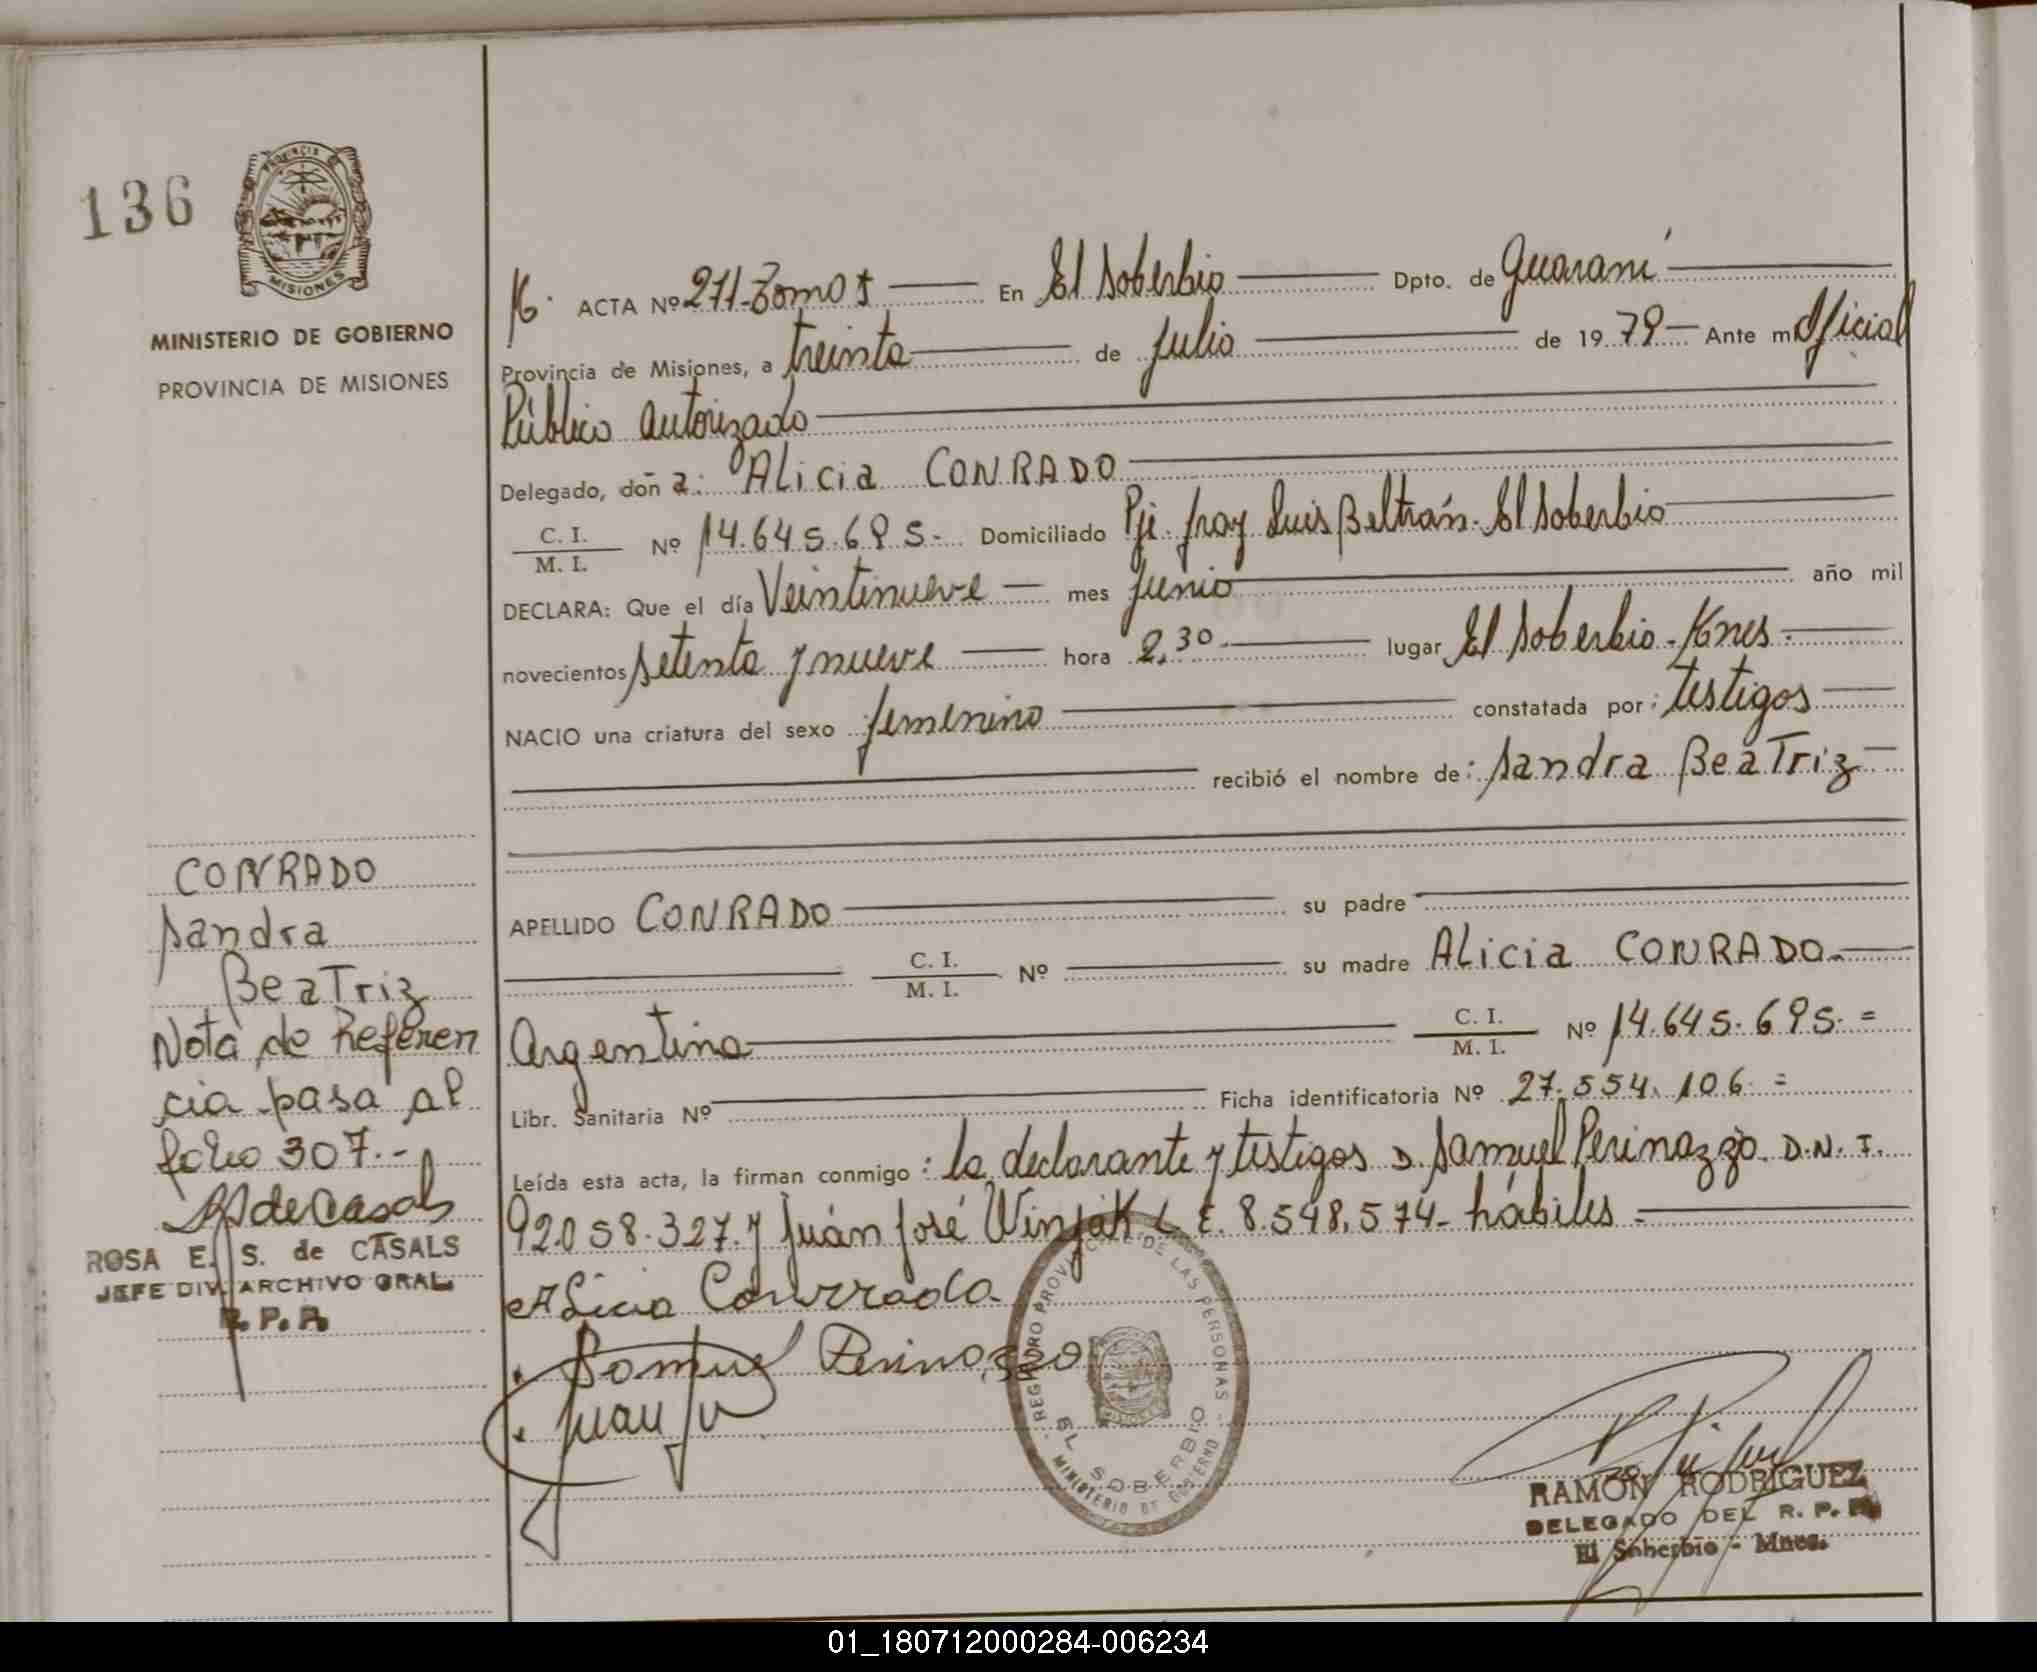 136
PROVINCIA DE
MISIONES
MINISTERIO DE GOBIERNO
PROVINCIA DE MISIONES
ACTA Nº 271-Tomo I En El Soberbio Dpto. de Guaraní
Provincia de Misiones, a treinta de julio de 1979 Ante mí Oficial
Público autorizado
Delegado, doña: Alicia CONRADO
C. I. / M. I. Nº 14.645.695.- Domiciliado Pje. fray Luis Beltrán. El Soberbio
DECLARA: Que el día Veintinueve mes junio año mil
novecientos setenta y nueve hora 2,30 lugar El Soberbio-Mnes.
NACIO una criatura del sexo femenino constatada por: testigos
recibió el nombre de: Sandra BeaTriz
APELLIDO CONRADO su padre
C. I. / M. I. Nº su madre Alicia CONRADO.
Argentina C. I. / M. I. Nº 14.645.695.=
Libr. Sanitaria Nº Ficha identificatoria Nº 27.554.106.=
Leída esta acta, la firman conmigo: la declarante y testigos D. Samuel Perinazzo. D.N.I.
92.058.327. y Juán José Winjak L.E. 8.548.574- hábiles.
Alicia Conrrado
Samuel Perinazzo
Juan
CONRADO
Sandra
BeaTriz
Nota de Referen
cia pasa al
folio 307.-
ROSA E. S. de CASALS
JEFE DIV. ARCHIVO GRAL.
R. P. P.
REGISTRO PROVINCIAL DE LAS PERSONAS
EL SOBERBIO
MINISTERIO DE GOBIERNO
RAMON RODRIGUEZ
DELEGADO DEL R. P. P.
El Soberbio - Mnes.
01_180712000284-006234